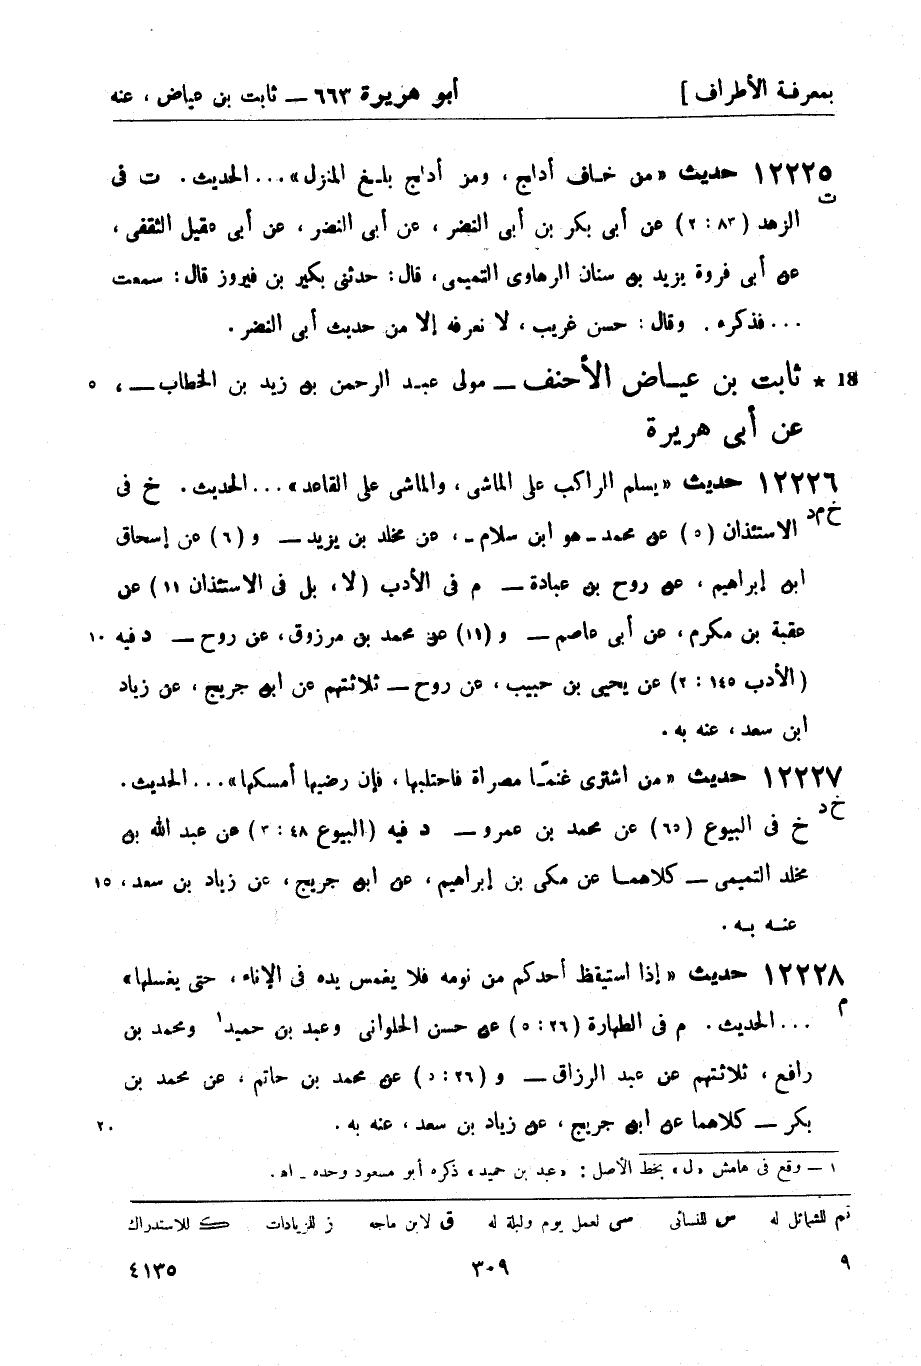 بمعرفة الأطراف ] أبو هريرة ٦٦٣ ــ ثابت بن عياض ، عنه
١٢٢٢٥ حديث «من خاف أدلج ، ومن أدلج بلغ المنزل» ... الحديث . ت فى
ت
الزهد ( ٨٣ : ٢ ) عن أبى بكر بن أبى النضر ، عن أبى النضر ، عن أبى عقيل الثقفى ،
عن أبى فروة يزيد بن سنان الرهاوى التميمى ، قال : حدثنى بكير بن فيروز قال : سمعت
... فذكره . وقال : حسن غريب ، لا نعرفه إلا من حديث أبى النضر .
18 ★ ثابت بن عيـاض الأحنف ــ مولى عبد الرحمن بن زيد بن الخطاب ــ ، ٥
عن أبى هريرة
١٢٢٢٦ حديث «يسلم الراكب على الماشى ، والماشى على القاعد» ... الحديث . خ فى
خ م د
الاستئذان ( ٥ ) عن محمد ـ هو ابن سلام ـ ، عن مخلد بن يزيد ــ و ( ٦ ) عن إسحاق
ابن إبراهيم ، عن روح بن عبادة ــ م فى الأدب ( لا ، بل فى الاستئذان ١١ ) عن
عقبة بن مكرم ، عن أبى عاصم ــ و ( ١١ ) عن محمد بن مرزوق ، عن روح ــ د فيه ١٠
( الأدب ١٤٥ : ٢ ) عن يحيى بن حبيب ، عن روح ــ ثلاثتهم عن ابن جريج ، عن زياد
ابن سعد ، عنه به .
١٢٢٢٧ حديث «من اشترى غنمًا مصراة فاحتلبها ، فإن رضيها أمسكها» ... الحديث .
خ د
خ فى البيوع ( ٦٥ ) عن محمد بن عمرو ــ د فيه ( البيوع ٤٨ : ٣ ) عن عبد الله بن
مخلد التميمى ــ كلاهمـا عن مكى بن إبراهيم ، عن ابن جريج ، عن زياد بن سعد ، ١٥
عنـه بـه .
١٢٢٢٨ حديث «إذا استيقظ أحدكم من نومه فلا يغمس يده فى الإناء ، حتى يغسلها»
م
... الحديث . م فى الطهارة ( ٢٦ : ٥ ) عن حسن الحلوانى وعبد بن حميد ١ ومحمد بن
رافع ، ثلاثتهم عن عبد الرزاق ــ و ( ٢٦ : ٥ ) عن محمد بن حاتم ، عن محمد بن
بكر ــ كلاهما عن ابن جريج ، عن زياد بن سعد ، عنه به . ٢٠
١ ــ وقع فى هامش «ل» بخط الأصل : «عبد بن حميد» ذكره أبو مسعود وحده ـ اه .
تم للشمائل له س للنسائى سى لعمل يوم وليلة له ق لابن ماجه ز للزيادات ك للاستدراك
٩ ٣٠٩ ٤١٣٥